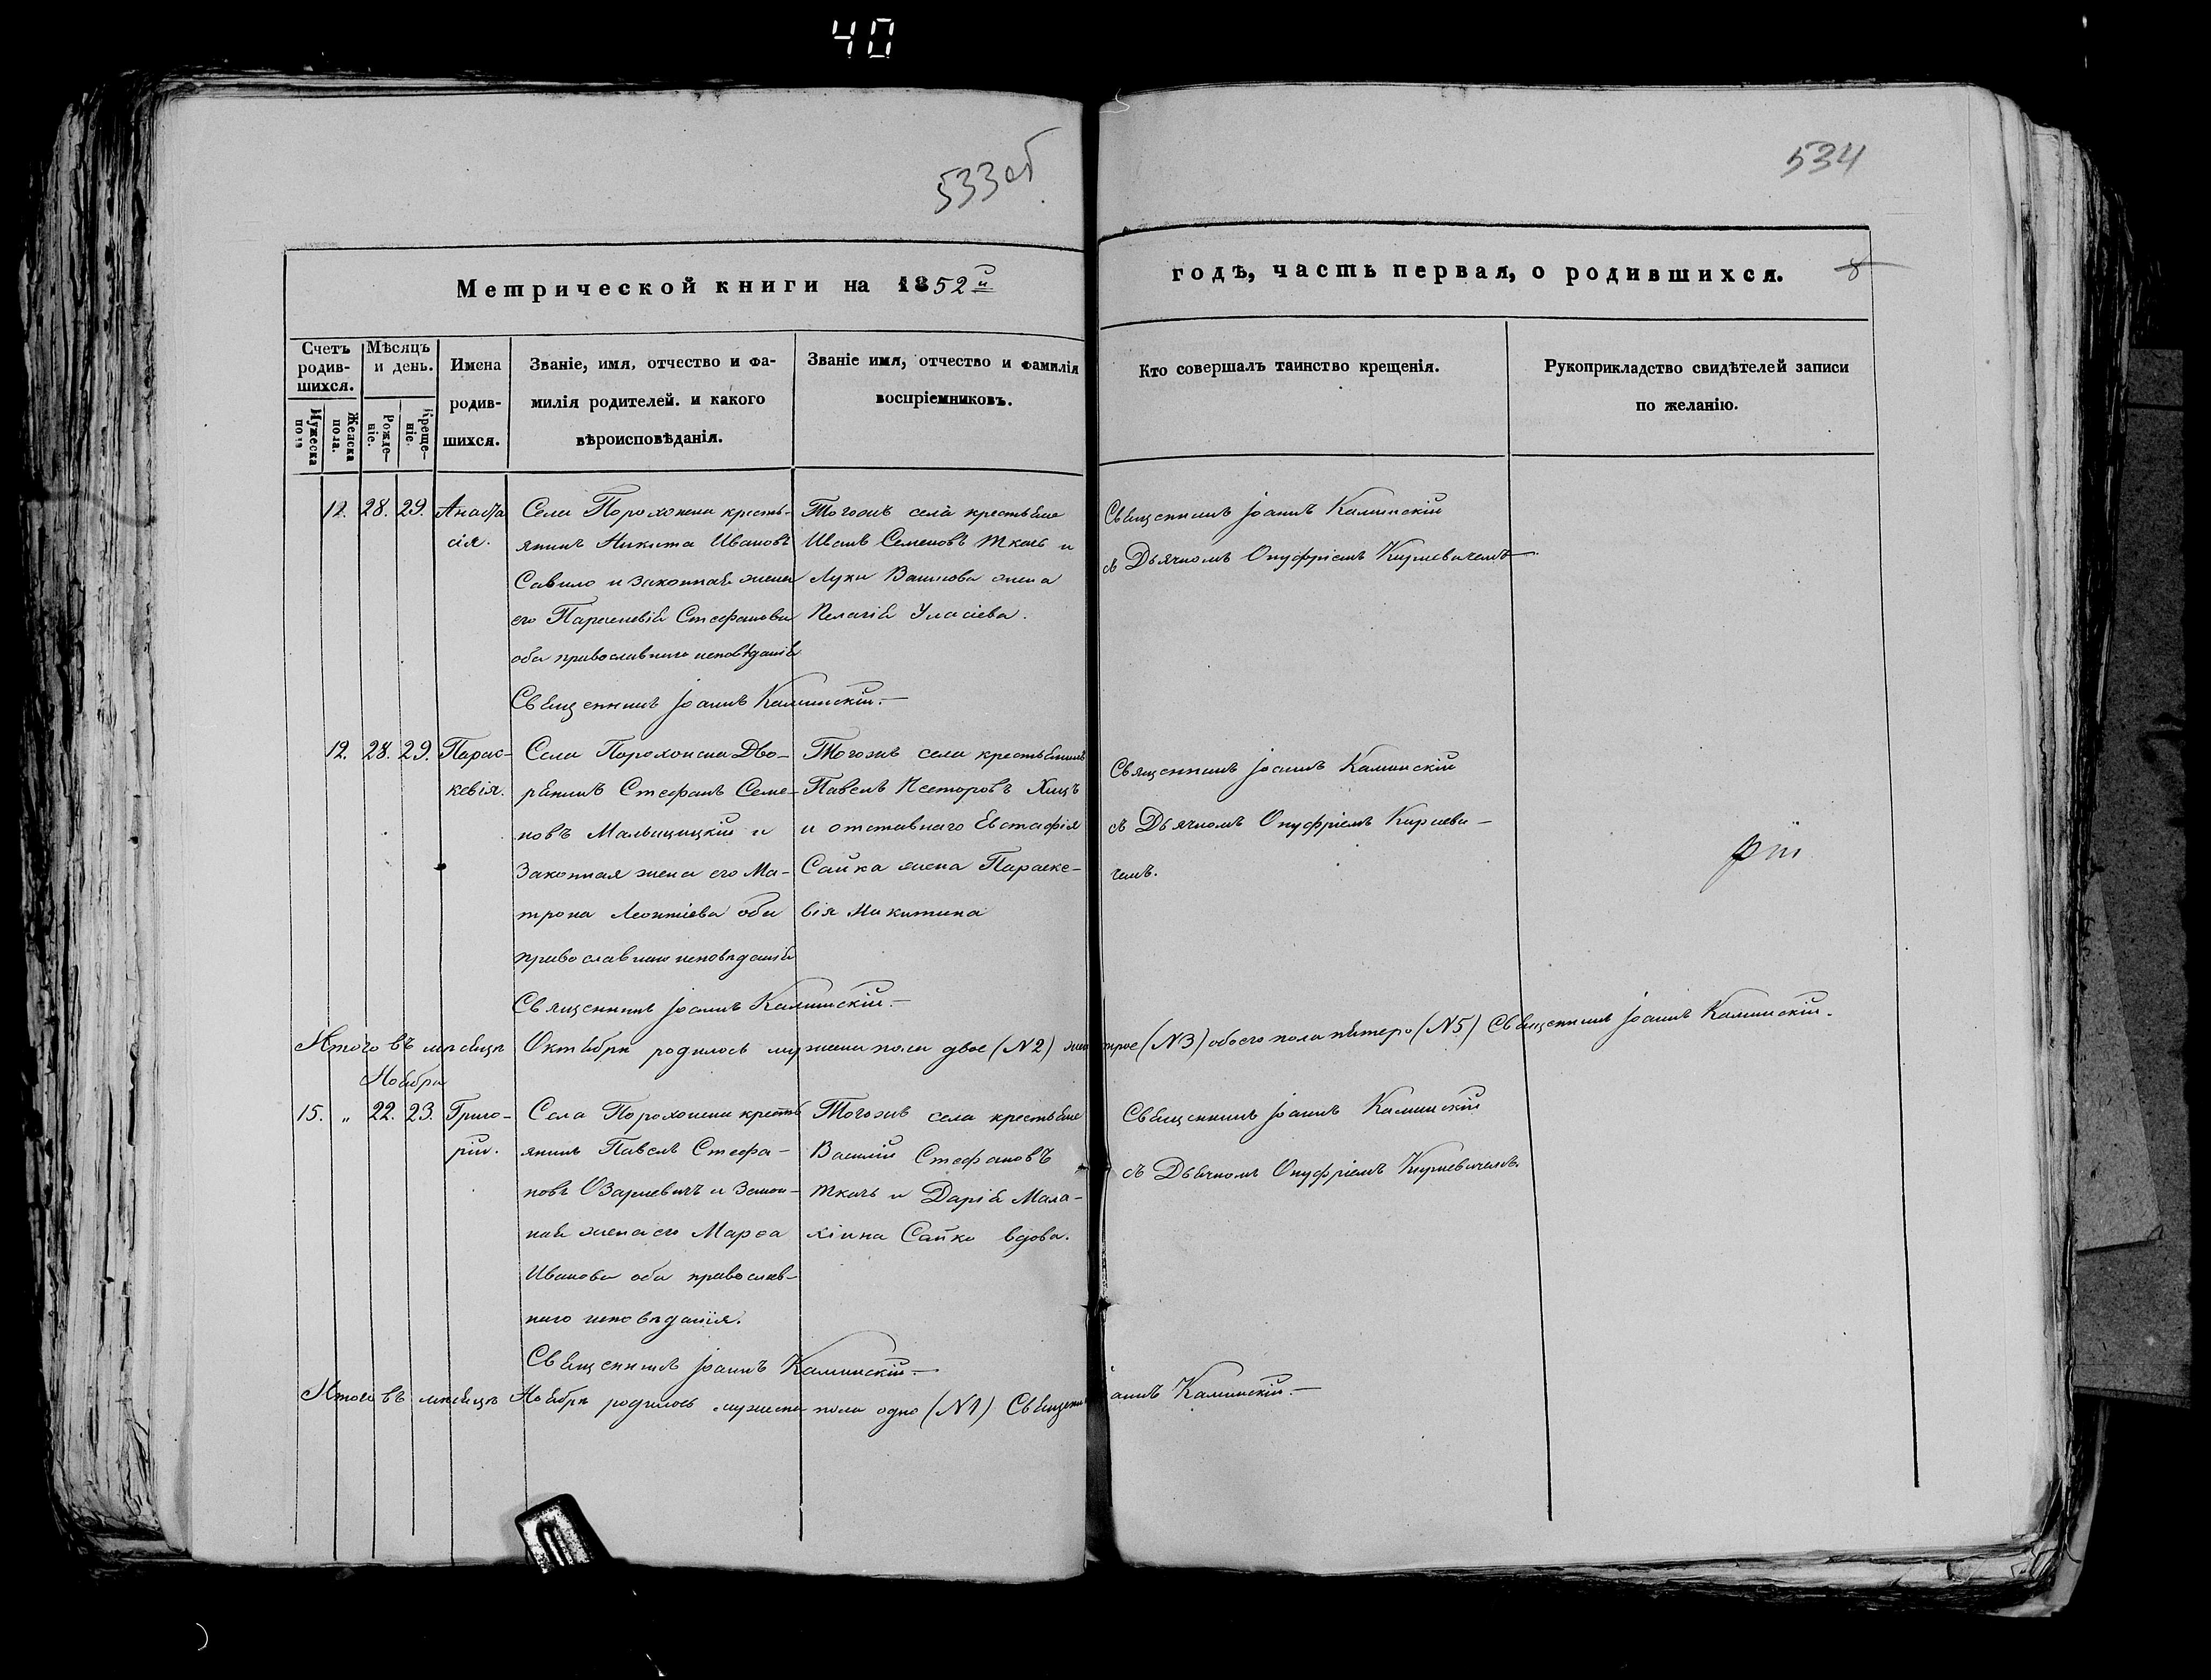 40
533об
534
Метрической книги на 1852й
годѣ, часть первая, о родившихся.
8
Счетъ родив-шихся.
Мужеска пола
Женска пола.
Мѣсяцъ и день.
Рожде-ніе.
Креще-ніе.
Имена
родив-
шихся.
Званіе, имя, отчество и фа-
милія родителей. и какого
вѣроисповѣданія.
Званіе имя, отчество и фамилія
воспріемниковъ.
Кто совершалъ таинство крещенія.
Рукоприкладство свидѣтелей записи
по желанію.
12. 28. 29. Анаста
сія.
Села Порохонска кресть-
янинъ Никита Ивановъ
Савило и законная жена
его Параскевія Стефанова
оба православнаго исповѣданія
Священникъ Іоаннъ Каминскій.—
Тогожъ села крестьяне
Иванъ Семеновъ Ткачь и
Луки жена
Пелагія Уласіева.
Священникъ Іоаннъ Каминскій
съ Дьячкомъ Онуфріемъ
12. 28. 29. Парас-
кевія.
Села Порохонска Дво-
рянинъ Стефанъ Семе-
новъ Мальщицкій и
Законная жена его Ма-
трона Леонтіева оба
православнаго исповѣданія
Священникъ Іоаннъ Каминскій.—
Тогожъ села крестьянинъ
Павелъ Несторовъ Хицъ
и отставнаго Евстафія
Сайка жена Параске-
вія Никитина
Священникъ Іоаннъ Каминскій
съ Дьячкомъ Онуфріемъ
чемъ.
Итого въ мѣсяцѣ Октябрѣ родилось мужеска пола двое (№2) жен трое (№3) обоего пола пятеро (№5) Священникъ Іоаннъ Каминскій.
Ноябрь
15. " 22. 23. Григо-
рій.
Села Порохонска кресть
янинъ Павелъ Стефа-
новъ Озарневичъ и Закон-
ная жена его Марѳа
Иванова оба православ-
наго исповѣданія.
Священникъ Іоаннъ Каминскій—
Тогожъ села крестьяне
Василій Стефановъ
Ткачь и Дарія Мала-
хіина Сайко вдова.
Священникъ Іоаннъ Каминскій
съ Дьячкомъ Онуфріемъ
Итого въ мѣсяцѣ Ноябрѣ родилось мужеска пола одно (№1) Священникъ Іоаннъ Каминскій.—